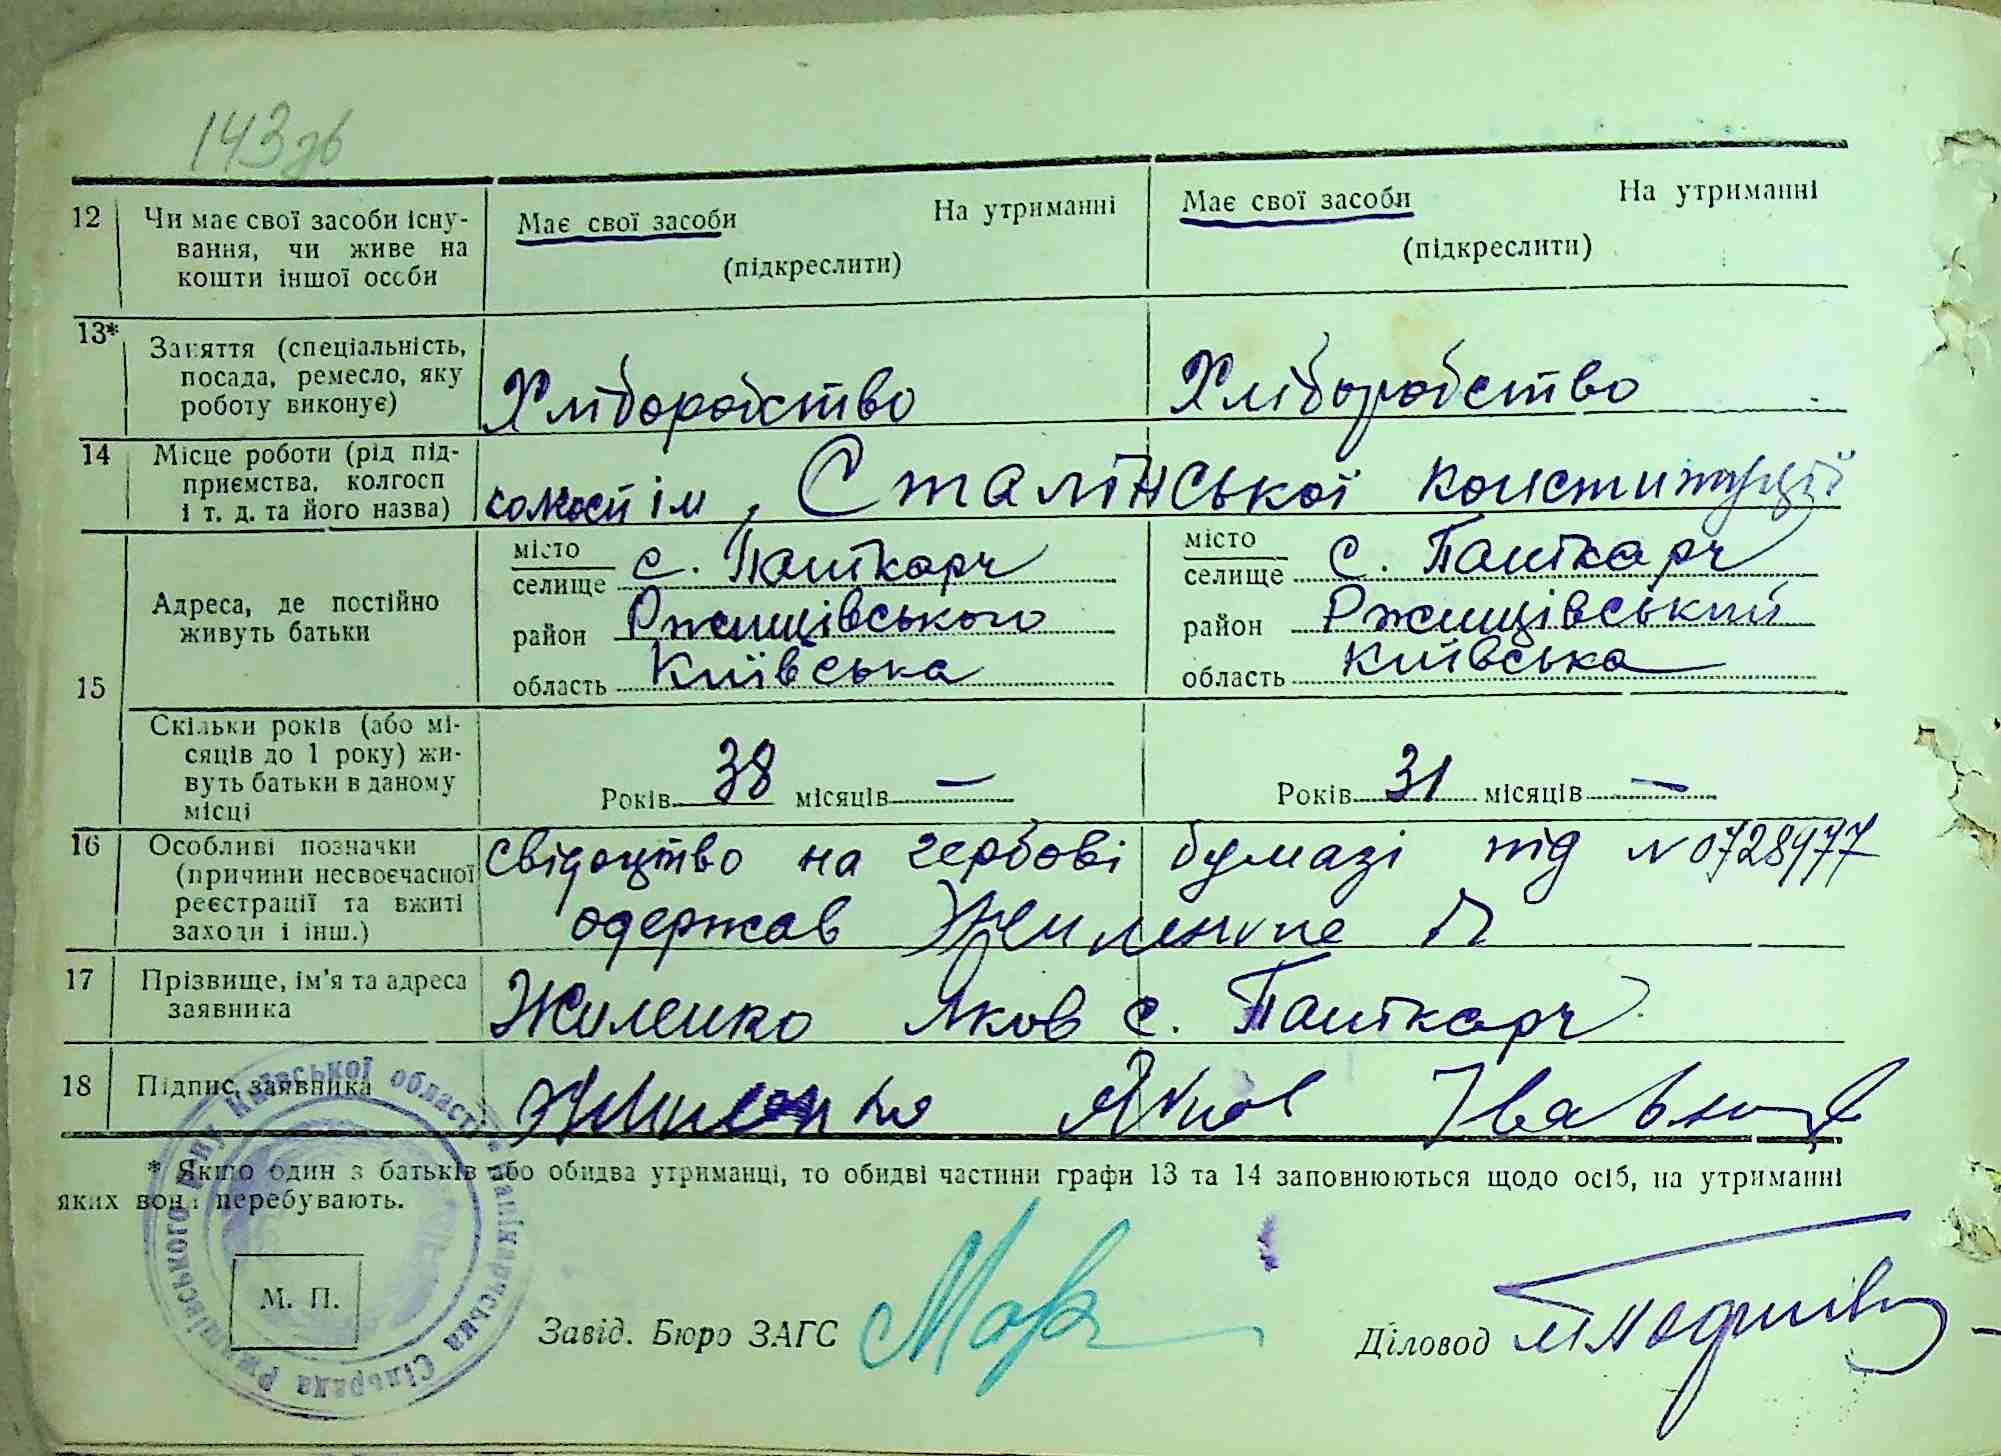 143зв
12 Чи має свої засоби існу- Має свої засоби На утриманні Має свої засоби На утриманні
вання, чи живе на (підкреслити) (підкреслити)
кошти іншої особи
13* Заняття (спеціальність,
посада, ремесло, яку Хліборобство Хліборобство
роботу виконує)
14 Місце роботи (рід під-
приємства, колгосп колгосп ім. Сталінської конституції
і т. д. та його назва)
15 Адреса, де постійно
живуть батьки
місто
селище с. Паникарч
район Ржищівського
область Київська
місто
селище с. Паникарч
район Ржищівський
область Київська
Скільки років (або мі-
сяців до 1 року) жи-
вуть батьки в даному
місці
Років 38 місяців — Років 31 місяців —
16 Особливі позначки свідоцтво на гербові бумазі під № 0728977
(причини несвоєчасної
реєстрації та вжиті одержав
заходи і інш.)
17 Прізвище, ім'я та адреса
заявника Жиленко Яков с. Паникарч
18 Підпис заявника Жиленко Яков
* Якщо один з батьків або обидва утриманці, то обидві частини графи 13 та 14 заповнюються щодо осіб, на утриманні
яких вони перебувають.
Київської області Сільрада
М. П.
Завід. Бюро ЗАГС
Діловод